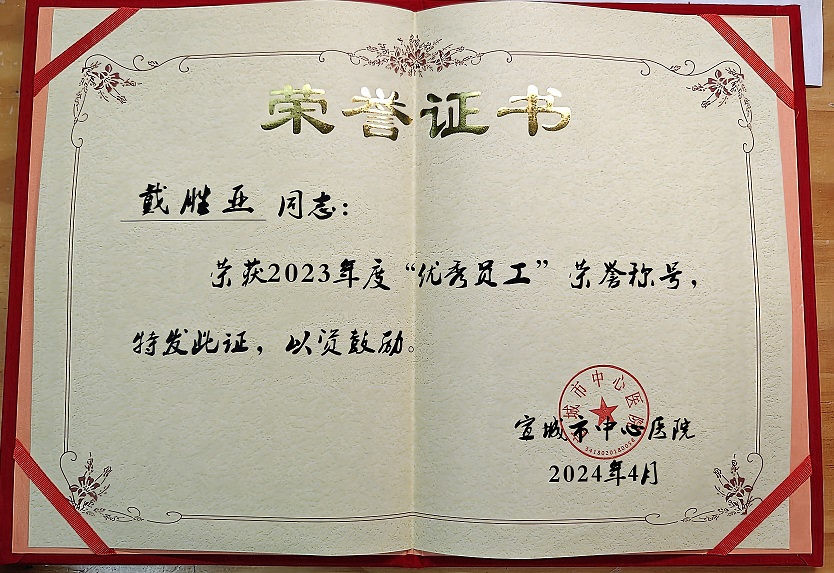 荣誉证书
戴胜亚 同志：
荣获2023年度“优秀员工”荣誉称号，
特发此证，以资鼓励。
宣城市中心医院
2024年4月
城市中心医院